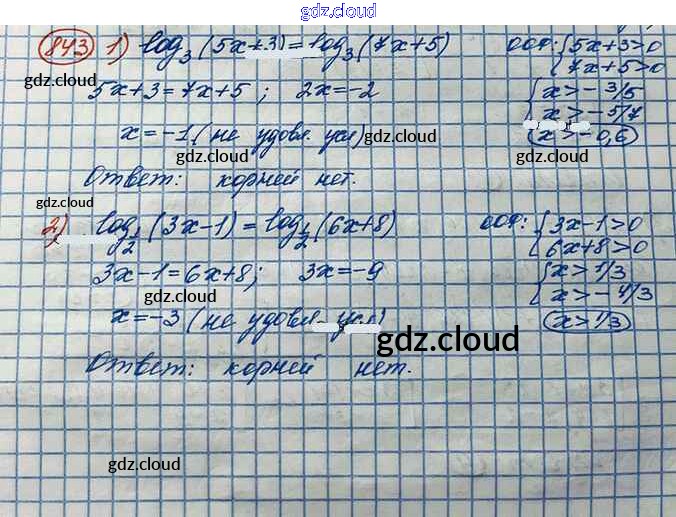 gdz.cloud
843 1) log₃(5x+3)=log₃(7x+5) ООФ: {5x+3>0
gdz.cloud {7x+5>0
5x+3=7x+5; 2x=-2 {x>-3/5
x>-5/7
x=-1 (не удовл. усл) gdz.cloud (x>-0,6)
gdz.cloud
Ответ: корней нет.
gdz.cloud
2) log½(3x-1)=log½(6x+8) ООФ: {3x-1>0
{6x+8>0
3x-1=6x+8; 3x=-9 {x>1/3
gdz.cloud x>-4/3
x=-3 (не удовл. усл) (x>1/3)
gdz.cloud
Ответ: корней нет.
gdz.cloud